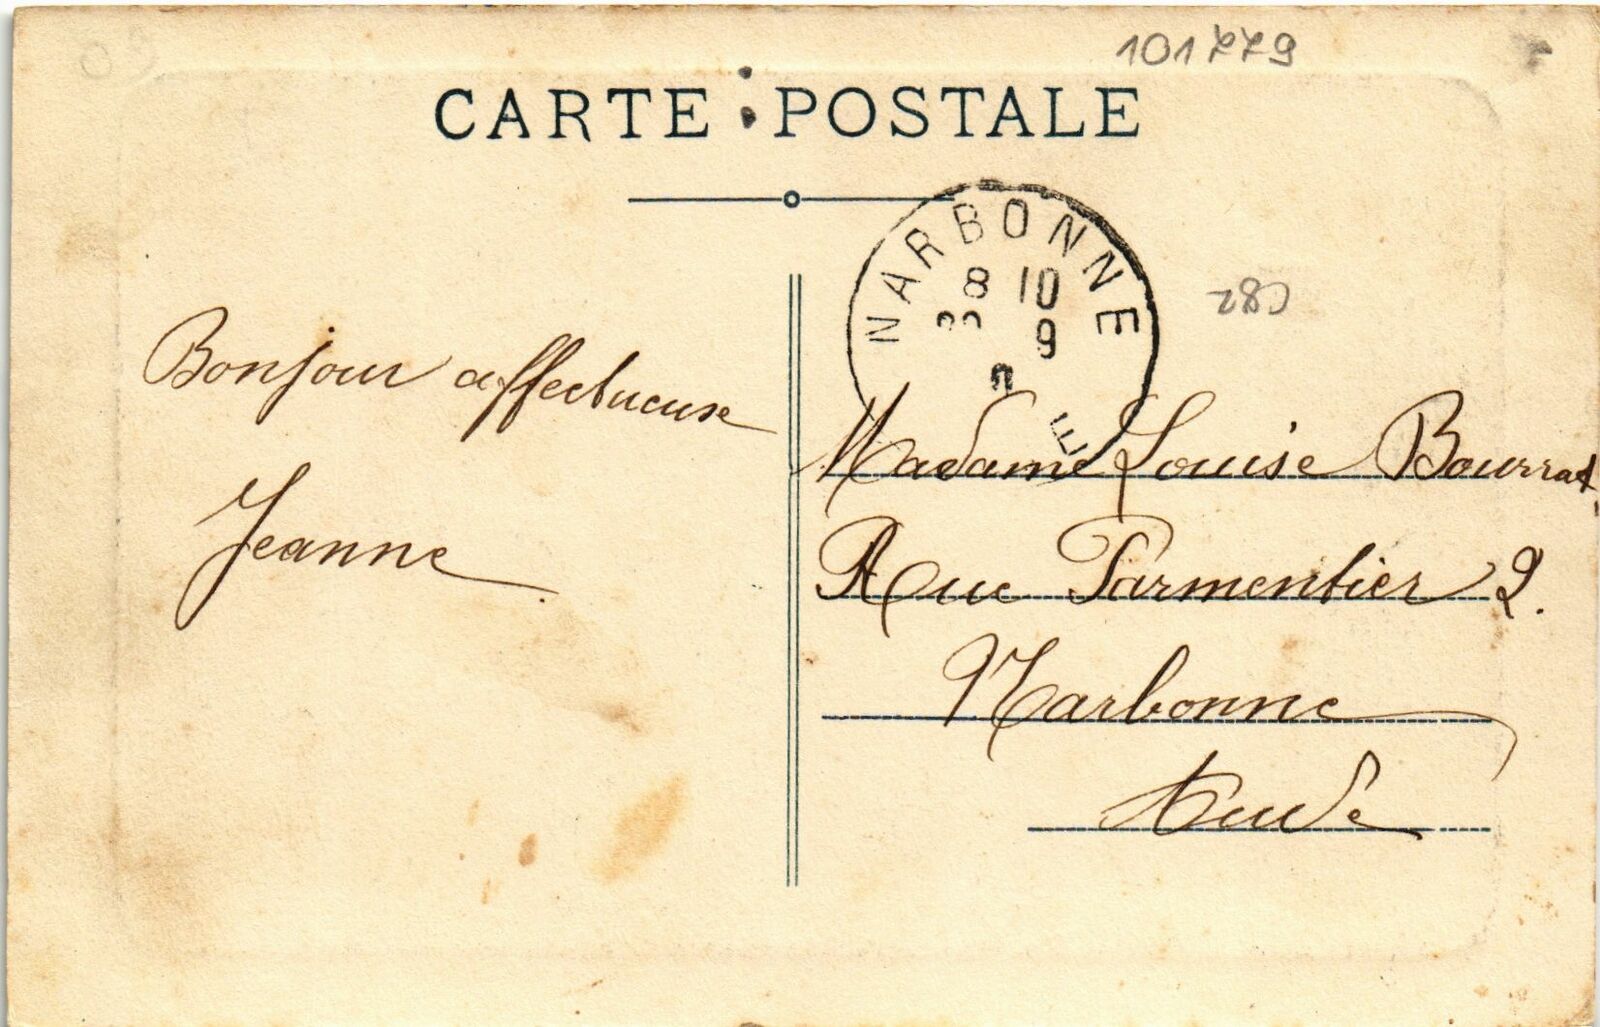 101779
CARTE POSTALE
NARBONNE
8 10
9
E
Bonjour affectueuse
Jeanne
Madame Louise Bourrat
Rue Parmentier 2.
Narbonne
Aude